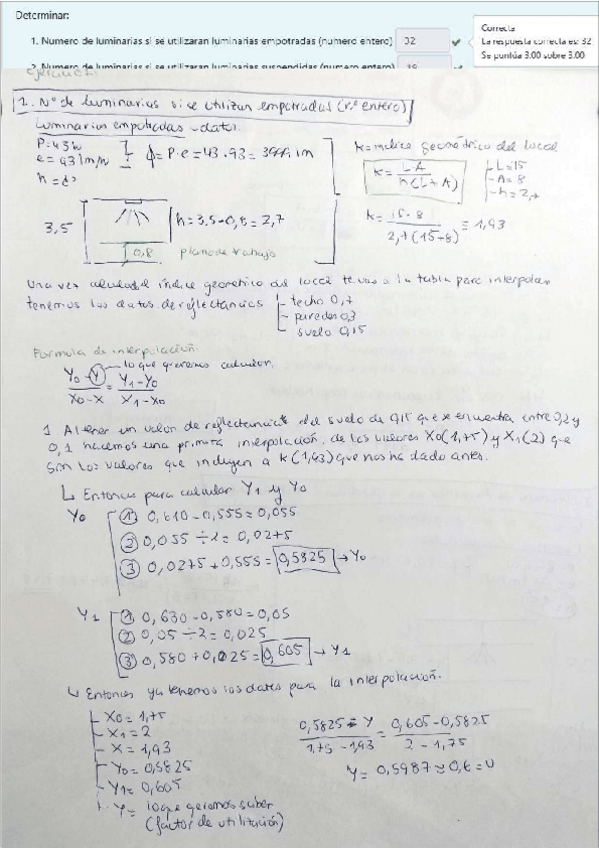 Determinar:
1. Numero de luminarias si se utilizaran luminarias empotradas (numero entero) 32
Correcta
La respuesta correcta es: 32
Se puntúa 3.00 sobre 3.00
1. Nº de luminarias si se utilizan empotradas (nº entero)
Luminarias empotradas - datos.
P=43W
e=93 lm/W
ϕ=P·e=43·93=3999 lm
h=d?
3,5
h=3,5-0,8=2,7
0,8
plano de trabajo
K=indice geométrico del local
K = L·A / h(L+A)
L=15
A=8
h=2,7
K = 15·8 / 2,7(15+8) = 1,93
Una vez calculado el índice geometrico del local te vas a la tabla para interpolar
tenemos los datos de reflectancias
techo 0,7
paredes 0,3
suelo 0,15
Formula de interpolación:
lo que queremos calcular.
Y0-Y / X0-X = Y1-Y0 / X1-X0
1 Al tener un valor de reflectancia del suelo de 0,15 que se encuentra entre 0,2 y
0,1 hacemos una primera interpolación, de los valores X0(1,75) y X1(2) que
son los valores que incluyen a K(1,93) que nos ha dado antes.
Entonces para calcular Y1 y Y0
Y0
① 0,610-0,555=0,055
② 0,055÷2=0,0275
③ 0,0275+0,555=0,5825 → Y0
Y1
① 0,630-0,580=0,05
② 0,05÷2=0,025
③ 0,580+0,025=0,605 → Y1
Entonces ya tenemos los datos para la interpolación.
X0=1,75
X1=2
X=1,93
Y0=0,5825
Y1=0,605
Y= lo que queremos saber
(factor de utilización)
0,5825-Y / 1,75-1,93 = 0,605-0,5825 / 2-1,75
Y=0,5987≈0,6=U